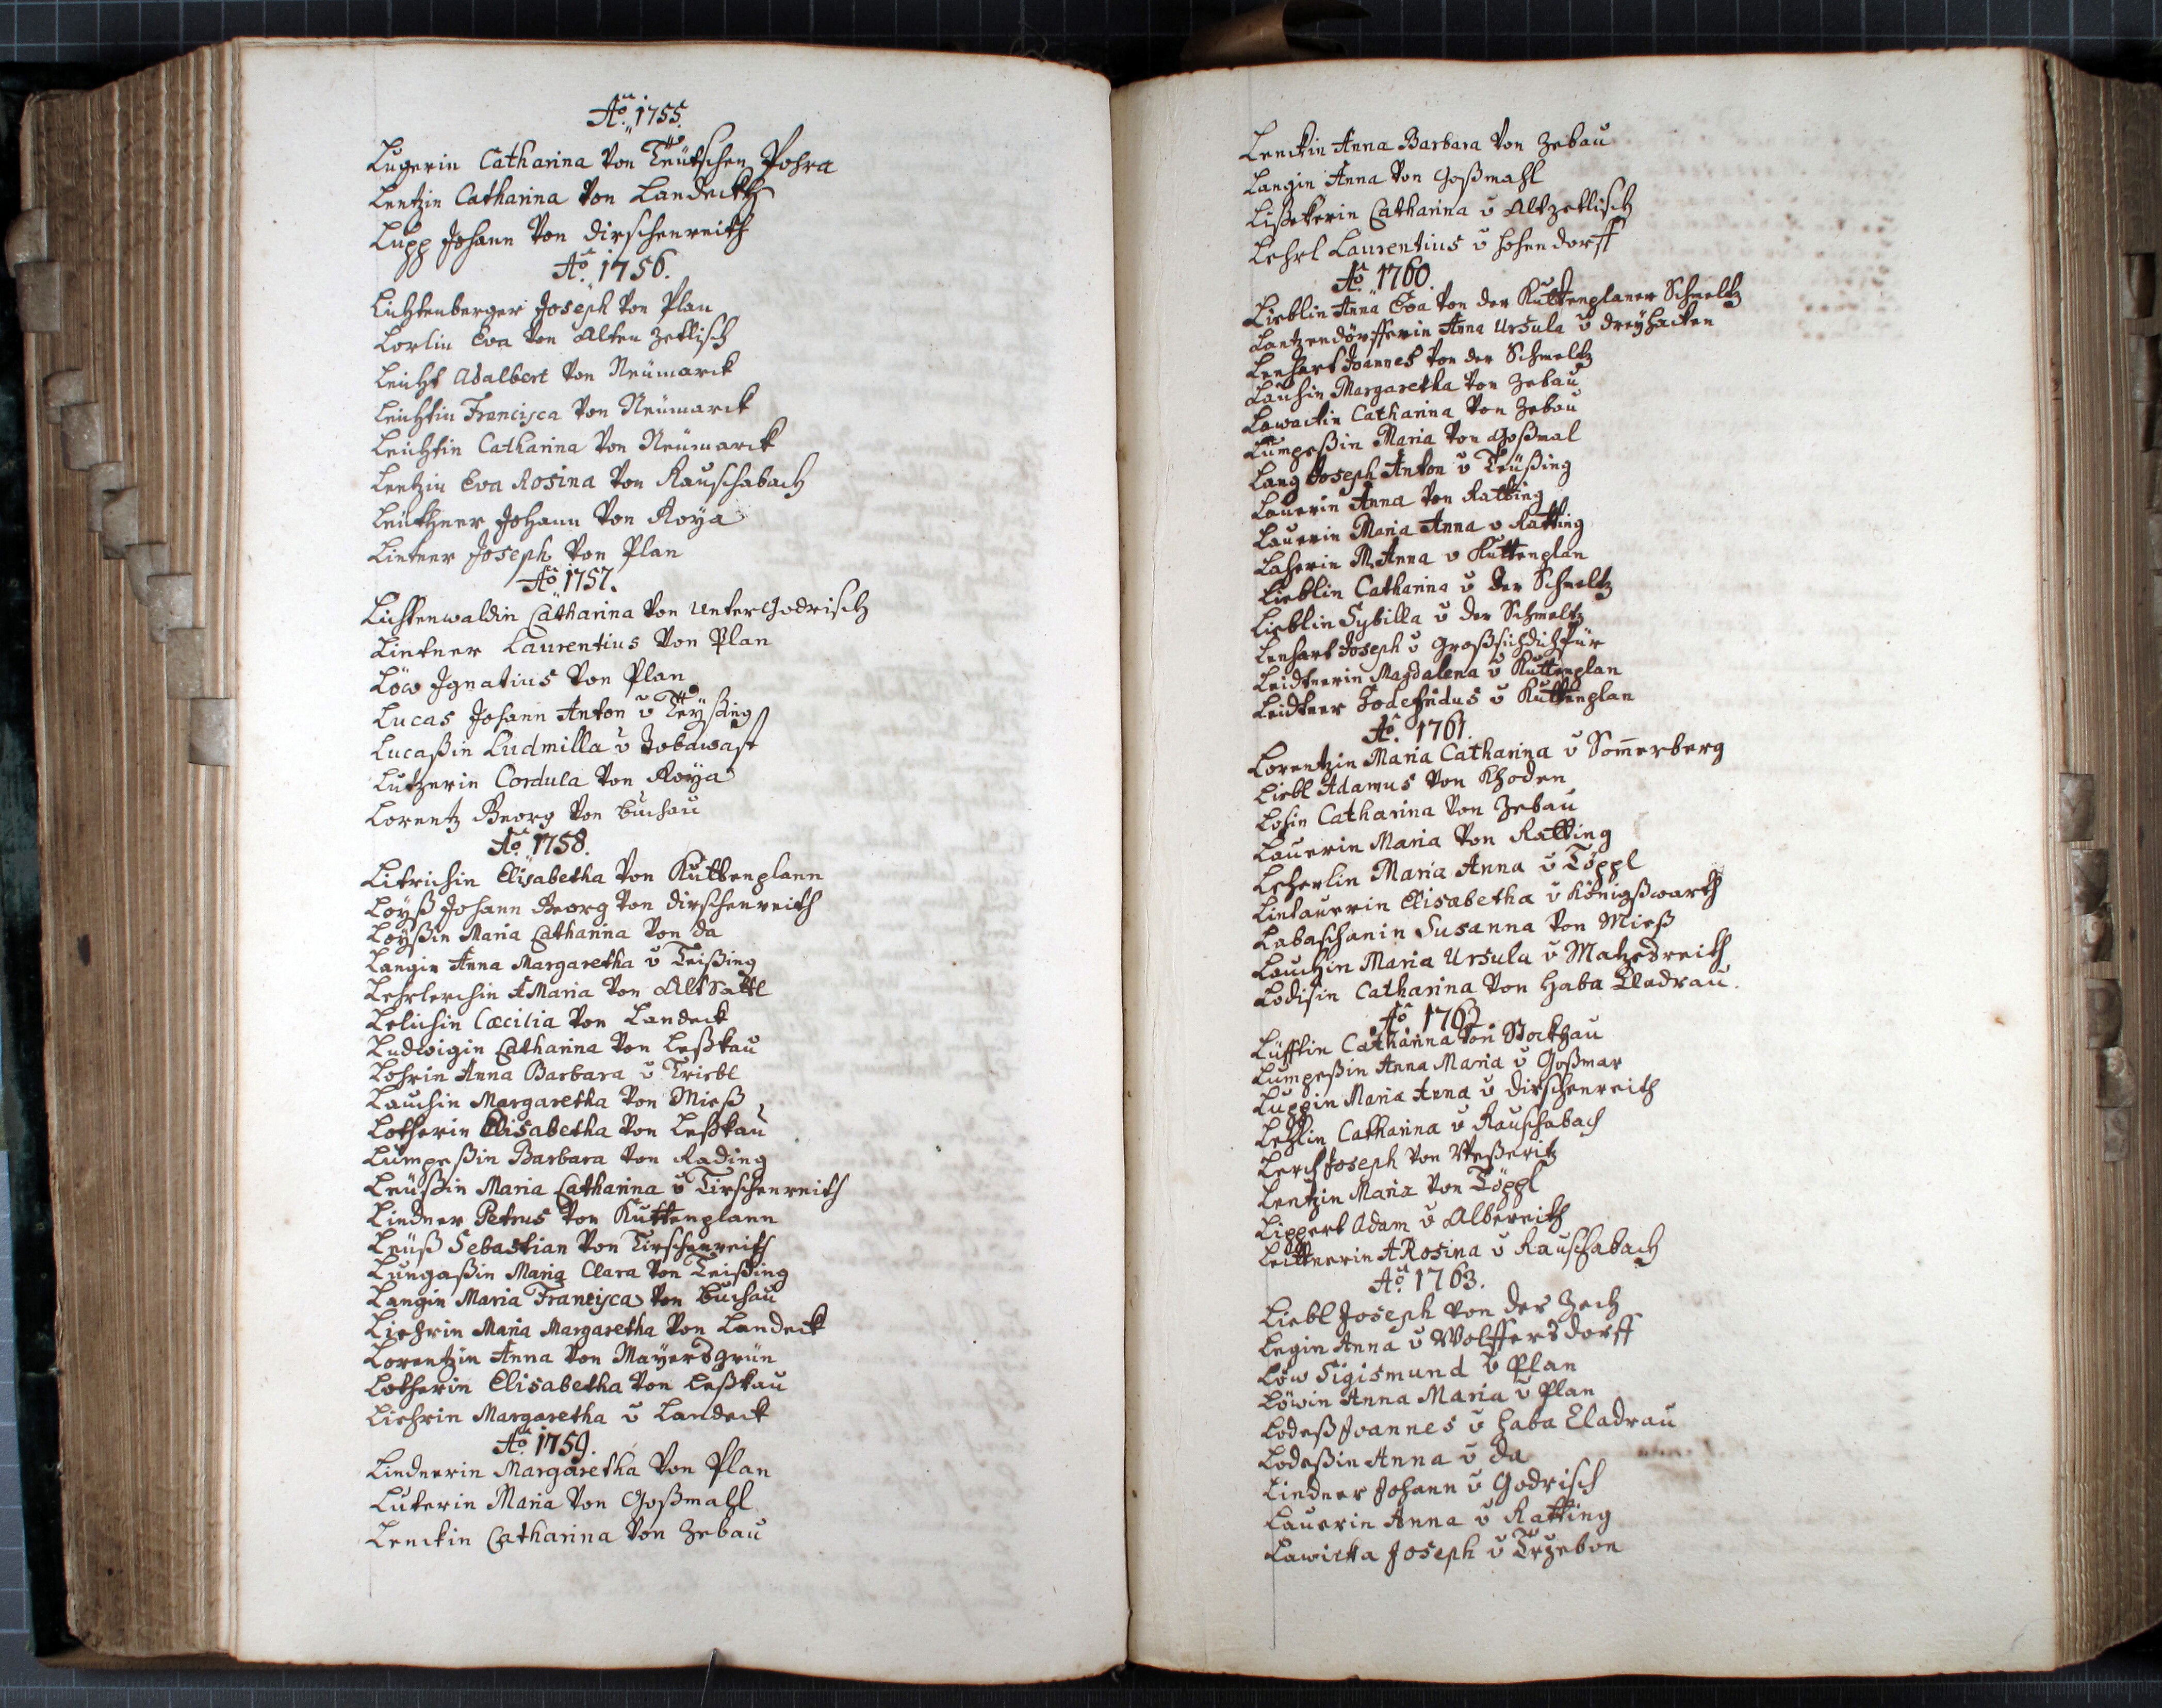 Ao. 1755.
Lugerin Catharina von Teutschen Pohra
Lentzin Catharina von Landeckh
Lupp Johann von dirschenreith
Ao. 1756.
Lichtenberger Joseph von Plan
Lorlin Eva von Alten Zetlisch
Leicht Adalbert von Neümarck
Leichtin Francisca von Neümarck
Leichtin Catharina von Neümarck
Lentzin Eva Rosina von Rauschabach
Leuthner Johann von Roÿa
Lintner Joseph von Plan
Ao. 1757.
Lichtenwaldin Catharina von Unter Godrisch
Lintner Laurentius von Plan
Löw Ignatius von Plan
Lucas Johann Anton v Teÿßing
Lucaßin Ludmilla v
Lutzerin Cordula von Roÿa
Lorentz Georg von Buchau
Ao. 1758.
Litrichin Elisabetha von Kuttenplann
Loÿß Johann Georg von dirschenreith
Loÿßin Maria Catharina von da
Langin Anna Margaretha v Teißing
Lehrlerchin A Maria von Altsattl
Lelichin Cæcilia von Landeck
Ludwigin Catharina von Leßkau
Lohrin Anna Barbara v Triebl
Lauchin Margaretha von Mieß
Lotherin Elisabetha von Leßkau
Lumpeßin Barbara von Rading
Leüßin Maria Catharina v Tirschenreith
Lindner Petrus von Kuttenplann
Leüß Sebastian von Tirschenreith
Lungaßin Maria Clara von Teißing
Langin Maria Francisca von Buchau
Liehrin Maria Margaretha von Landeck
Lorentzin Anna von Maÿersgrün
Lotherin Elisabetha von Leßkau
Liehrin Margaretha v Landeck
Ao. 1759.
Lindnerin Margaretha von Plan
Luterin Maria von Goßmahl
Lenckin Catharina von Zebau
Lenckin Anna Barbara von Zebau
Langin Anna von Goßmahl
Lißekerin Catharina v Altzetlisch
Lehrl Laurentius v Hohendorff
Ao. 1760.
Lieblin Anna Eva von der Kuttenplaner Schmeltz
Lantzendörfferin Anna Ursula v dreÿhacken
Lenhart Joannes von der Schmeltz
Lauhin Margaretha von Zebau
Lawackin Catharina von Zebau
Lumpeßin Maria von Goßmal
Lang Joseph Anton v Teüßing
Lauerin Anna von Ratting
Lauerin Maria Anna v Ratting
Laherin M. Anna v Kuttenplan
Lieblin Catharina v der Schmeltz
Lieblin Sybilla v der Schmeltz
Lenhart Joseph v Großsichdichfür
Leidtnerin Magdalena v Kuttenplan
Leidtner v Kuttenplan
Ao. 1761.
Lorentzin Maria Catharina v Somerberg
Liebl Adamus von Khoden
Lohin Catharina von Zebau
Lauerin Maria von Ratting
Leherlin Maria Anna v Töppl
Lintauerin Elisabetha v Königßwarth
Labaschanin Susanna von Mieß
Lauchin Maria Ursula v Matzesreith
Lodisin Catharina von Haba Cladrau.
Ao. 1762.
Lüfftin Catharina von Stockhau
Lumpeßin Anna Maria v Goßmar
Luppin Maria Anna v dirschenreith
Letzlin Catharina v Rauschabach
Lerch Joseph von Weßeritz
Lentzin Maria von Töppl
Lippert Adam v Albereith
Leittnerin A Rosina v Rauschabach
Ao. 1763.
Liebl Joseph von der Zech
Legin Anna v Wolffersdorff
Löw Sigismund v Plan
Löwin Anna Maria v Plan
Lodeß Joannes v Haba Cladrau
Lodeßin Anna v da
Lindner Johann v Godrisch
Lauerin Anna v Ratting
Lawicka Joseph v Trzebon